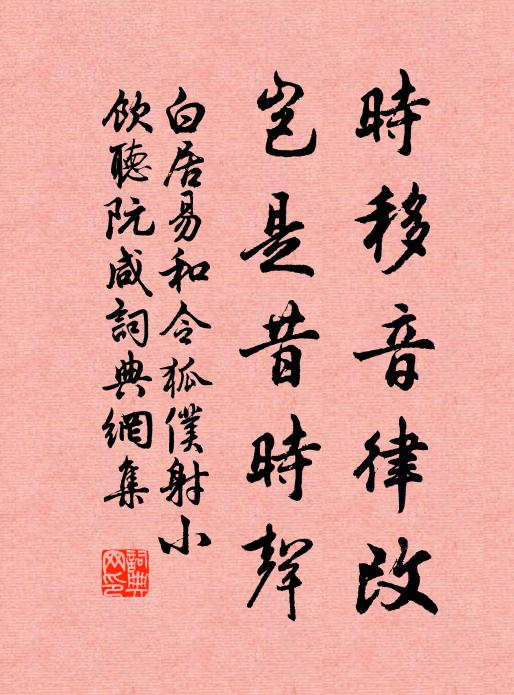 時移音律改
豈是昔時聲
白居易和令狐僕射小
飲聽阮咸詞典網集
詞典網印